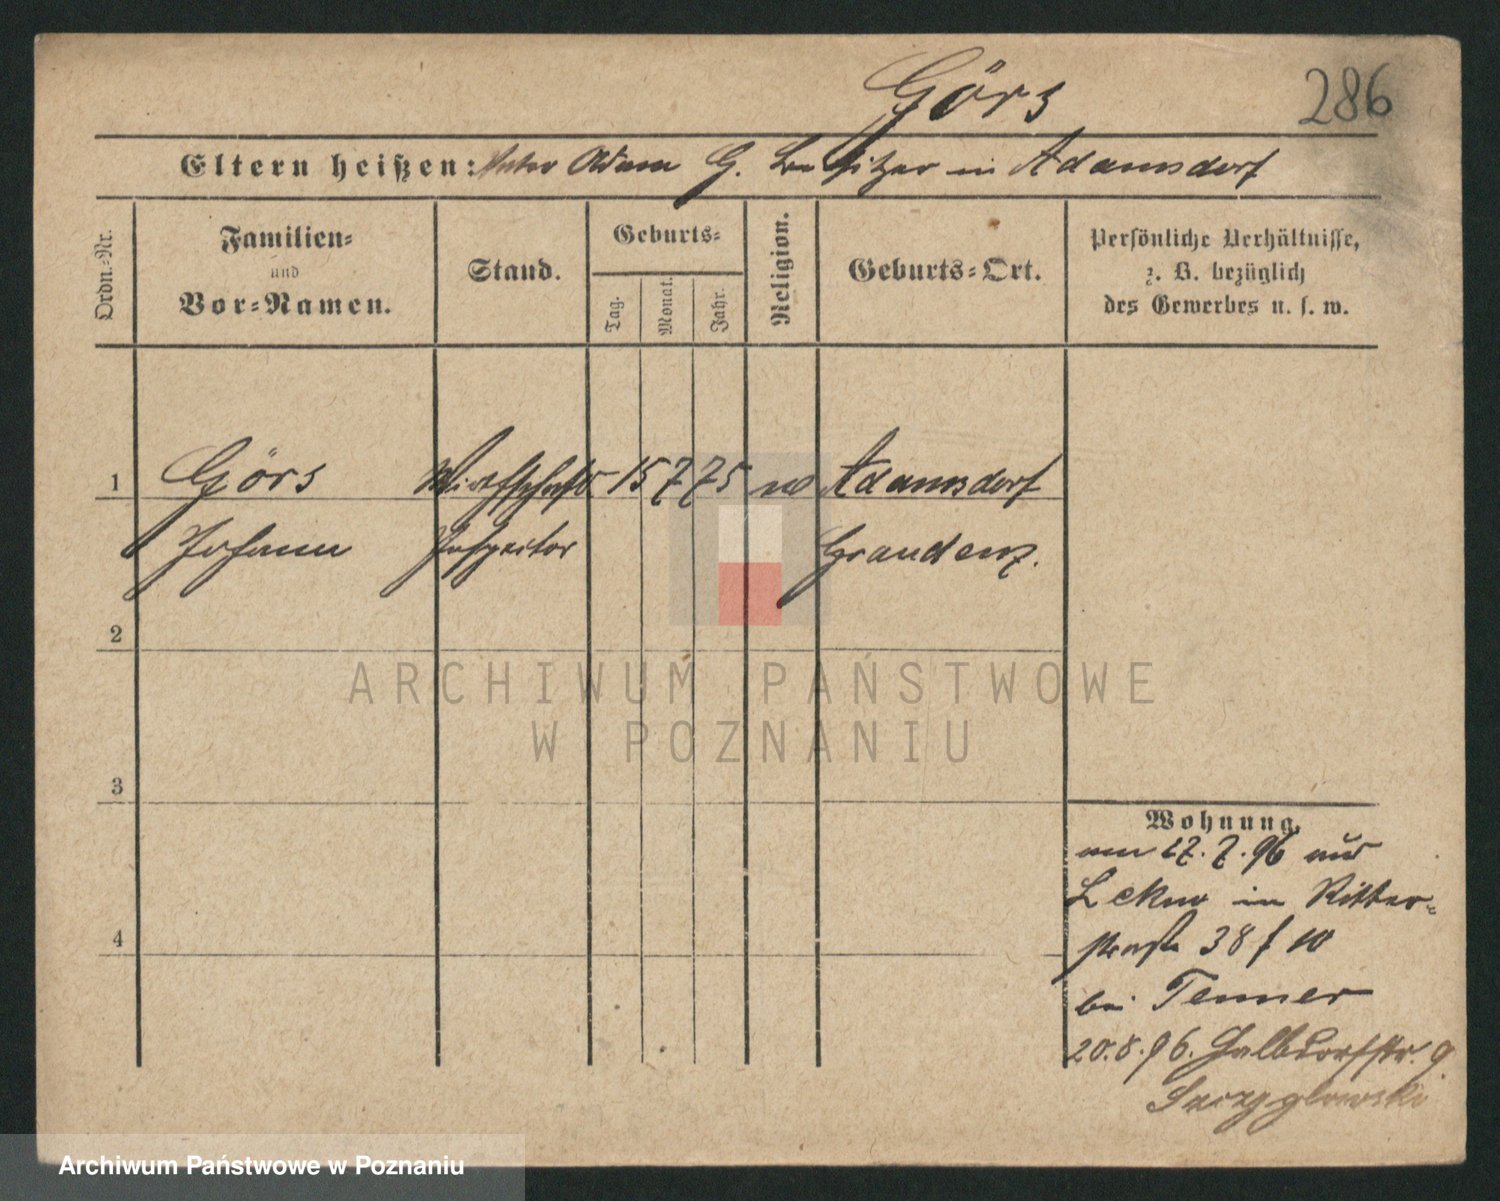 Görs
286
Eltern heißen: Vater Adam G. Besitzer in Adamsdorf
Ordn.-Nr.
Familien-
und
Vor-Namen.
Stand.
Geburts-
Tag.
Monat.
Jahr.
Religion.
Geburts-Ort.
Persönliche Verhältnisse,
z. B. bezüglich
des Gewerbes u. s. w.
1 Görs Wirthschafts 15 7 75 Adamsdorf
Johann Inspector Graudenz.
2
3
4
Wohnung.
am 27. 7. 96 aus
in Ritter-
straße 38
bei Tenner
20.8.96. Halbdorfstr. 9
Szczyglowski
ARCHIWUM PAŃSTWOWE
W POZNANIU
Archiwum Państwowe w Poznaniu